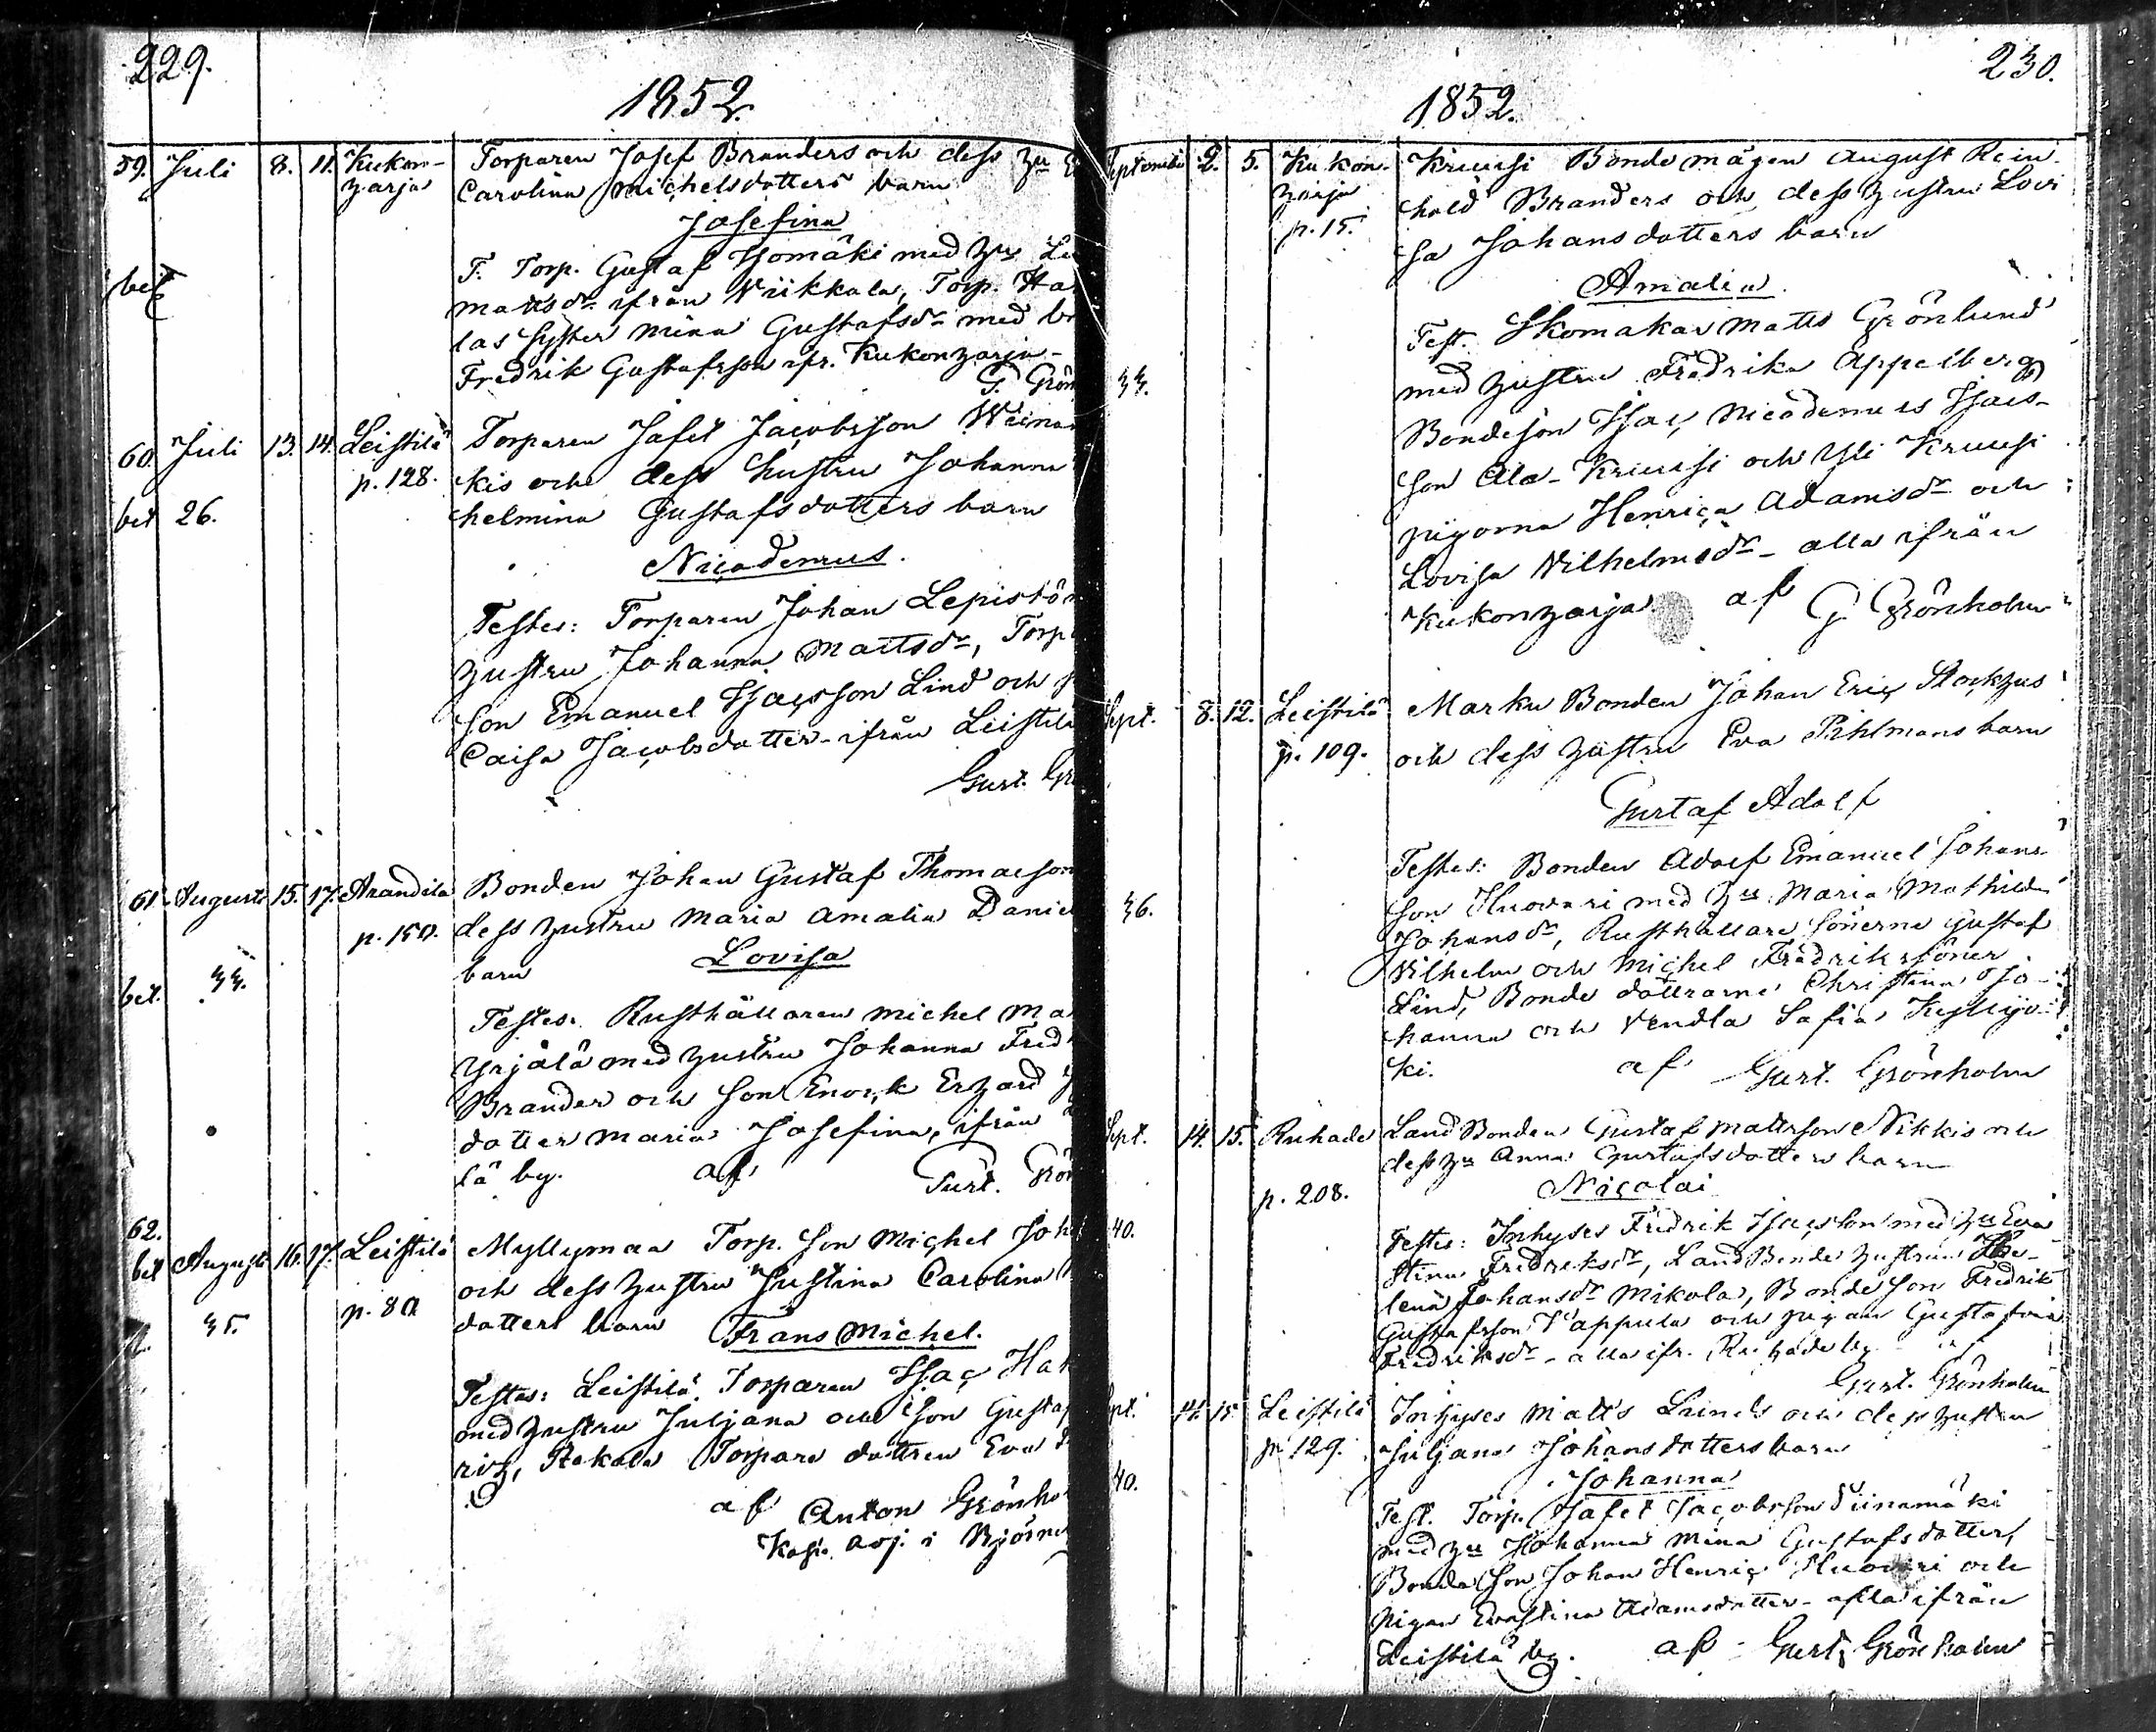 229.
1852.
59. Juli 8. 11. Kukon-
harja
Torparen Josef Branders och dess hu
Carolina Michelsdotters barn
Josefina
bet
T. Torp. Gustaf Isomäki med hu
Mattsdr ifrån Viikkala, Torp.
las Syster Mina Gustafsdr med
Fredrik Gustafsson ifr. Kukonharja-
G. Grön
60. Juli 13. 14. Leistilä
p. 128.
bet 26.
Torparen Jafet Jacobsson
kis och dess hustru Johanna
helmina Gustafsdotters barn
Nicademus.
Testes: Torparen Johan Lepistö
hustru Johanna Mattsdr, Torp
son Emanuel Isacsson Lind och
Caisa Jacobsdotter - ifrån Leistilä
Gust. Gr
61. Augusti 15. 17. Arandila
p. 150.
bet.
Bonden Johan Gustaf Thomasson
dess hustru Maria Amalia Daniel
barn Lovisa
Testes: Rusthållaren Michel Ma
Yrjälä med hustru Johanna Fred
Brander och son Enock Erhard
dotter Maria Josefina, ifrån
lä by. af Gust. Grön
62.
bet Augusti 16. 17. Leistilä
p. 80
Myllymaa Torp. Son Michel Joh
och dess hustru Justina Carolina
dotters barn Frans Michel.
Testes: Leistilä Torparen Isac
med hustru Juljana och Son Gustaf
Torpare dottren Eva
af Anton Grönho
Kap. adj. i Björne
230.
1852.
September 2. 5. Kukon-
harja
p. 15.
Kruusi Bonde mågen August Rein-
hold Branders och dess hustru Lovi
sa Johansdotters barn
Amalia.
Test. Skomakar Matts Grönlund
med hustru Fredrika Appelberg
Bondeson Isac Nicodemus Isacs-
son Ala-Kruusi och Yli Kruusi
pigorna Henrica Adamsdr och
Lovisa Vilhelmsdr - alla ifrån
Kukonharja. af G Grönholm
Sept. 8. 12. Leistilä
p. 109.
Marku Bonden Johan Eric
och dess hustru Eva Pihlmans barn
Gustaf Adolf
Testes: Bonden Adolf Emanuel Johans
son Huovari med hu Maria Mathilda
Johansdr, Rusthållare sönerna Gustaf
Vilhelm och Michel Fredrikssöner
Lind, Bonde döttrarne Christina Jo-
hanna och Vendla Sofia
ki. af Gust. Grönholm
Sept. 14. 15. Ruhade
p. 208.
40.
Land Bonden Gustaf Mattsson Nikkis och
dess hu Anna Gustafsdotters barn
Nicolai
Testes: Inhyses Fredrik Isacsson med hu Eva
Stina Fredriksdr, Land Bonde hustrun He-
lena Johansdr Mikola, Bondeson Fredrik
Gustafsson Vappula och pigan Gustafva
Fredriksdr - alla ifr. Ruhade by af
Gust. Grönholm
Sept. 14. 15. Leistilä
p. 129.
40.
Inhyses Matts Linds och dess hustru
Juljana Johansdotters barn
Johanna
Test. Torp. Jafet Jacobsson Viinamäki
med hu Johanna Mina Gustafsdotter,
Bonde Son Johan Henric Huovari och
pigan Evastina Adamsdotter - alla ifrån
Leistilä by. af Gust. Grönholm